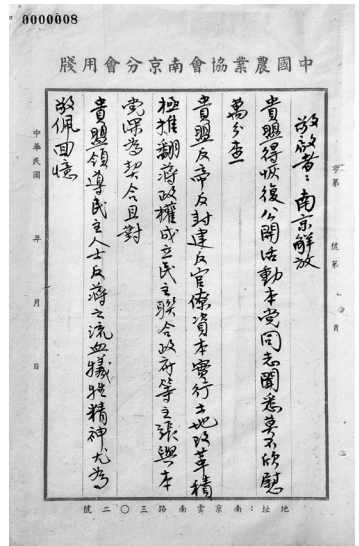 0000008
中國農業協會南京分會用牋
字第 號第 頁
敬啟者：南京解放
貴盟得恢復公開活動本党同志聞悉莫不欣慰
萬分查
貴盟反帝反封建反官僚資本實行土地改革積
極推翻蔣政權成立民主聯合政府等主張與本
党深為契合且對
貴盟領導民主人士反蔣之流血犧牲精神尤為
敬佩回憶
中華民國 年 月 日
地址：南京雲南路三〇二號